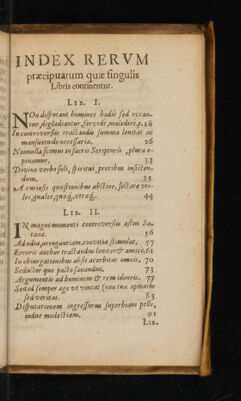 INDEX RERVM
præcipuarum quæ singulis
Libris continentur.
LIB. I.
NOn disputant homines hodie sed rixan-
tur, digladiantur, fervide, maledice. p. 18
In controversiis tractandis summa lenitas ac
mansuetudo necessaria. 26
Nonnulla scimus in sacris Scripturis, plura o-
pinamur. 33
Divino verbo soli, spiritui, precibus insisten-
dum. 35
A curiosis quæstionibus abstine, sectare uti-
les, quales, quæq́,
44
LIB. II.
IN magni momenti controversiis astus Sa-
tanæ. 56
Ad odia, arrogantiam, convitia stimulat, 57
Erroris author tractandus leniter & amicè. 61
In objurgationibus absit acerbitas omnis. 70
Seductor quo pacto sanandus. 73
Argumentis ad hominem & rem idoneis. 77
Sed id semper age ut vincat (non tua opinatio
sed veritas. 85
Disputationem ingressurus superbiam pelle,
indue modestiam. 91
LIB.